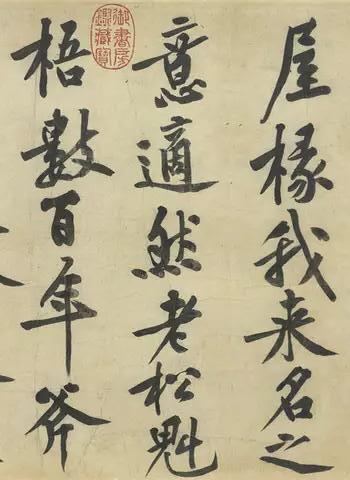 屋椽我来名之
意適然老松魁
梧數百年斧
御書房鑑藏寶